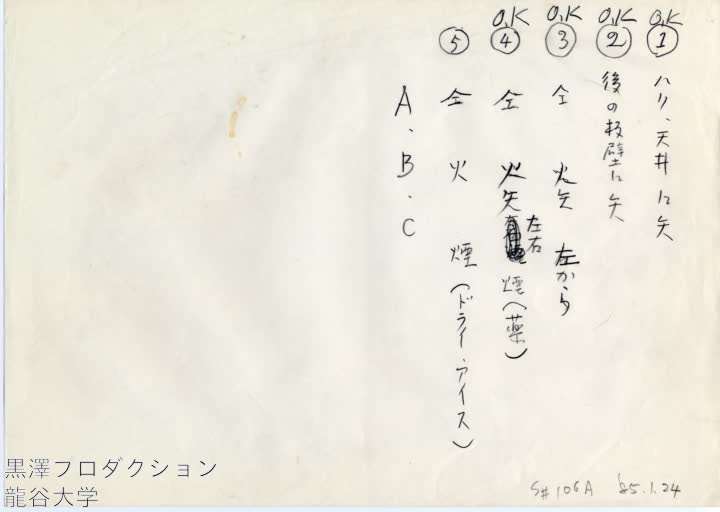 O.K ① ハリ、天井に矢
O.K ② 後の板壁に矢
O.K ③ 仝 火矢 左から
O.K ④ 仝 火矢 左右 煙(薬)
⑤ 仝 火 煙(ドライ・アイス)
A・B・C
S#106A '85.1.24
黒澤プロダクション
龍谷大学